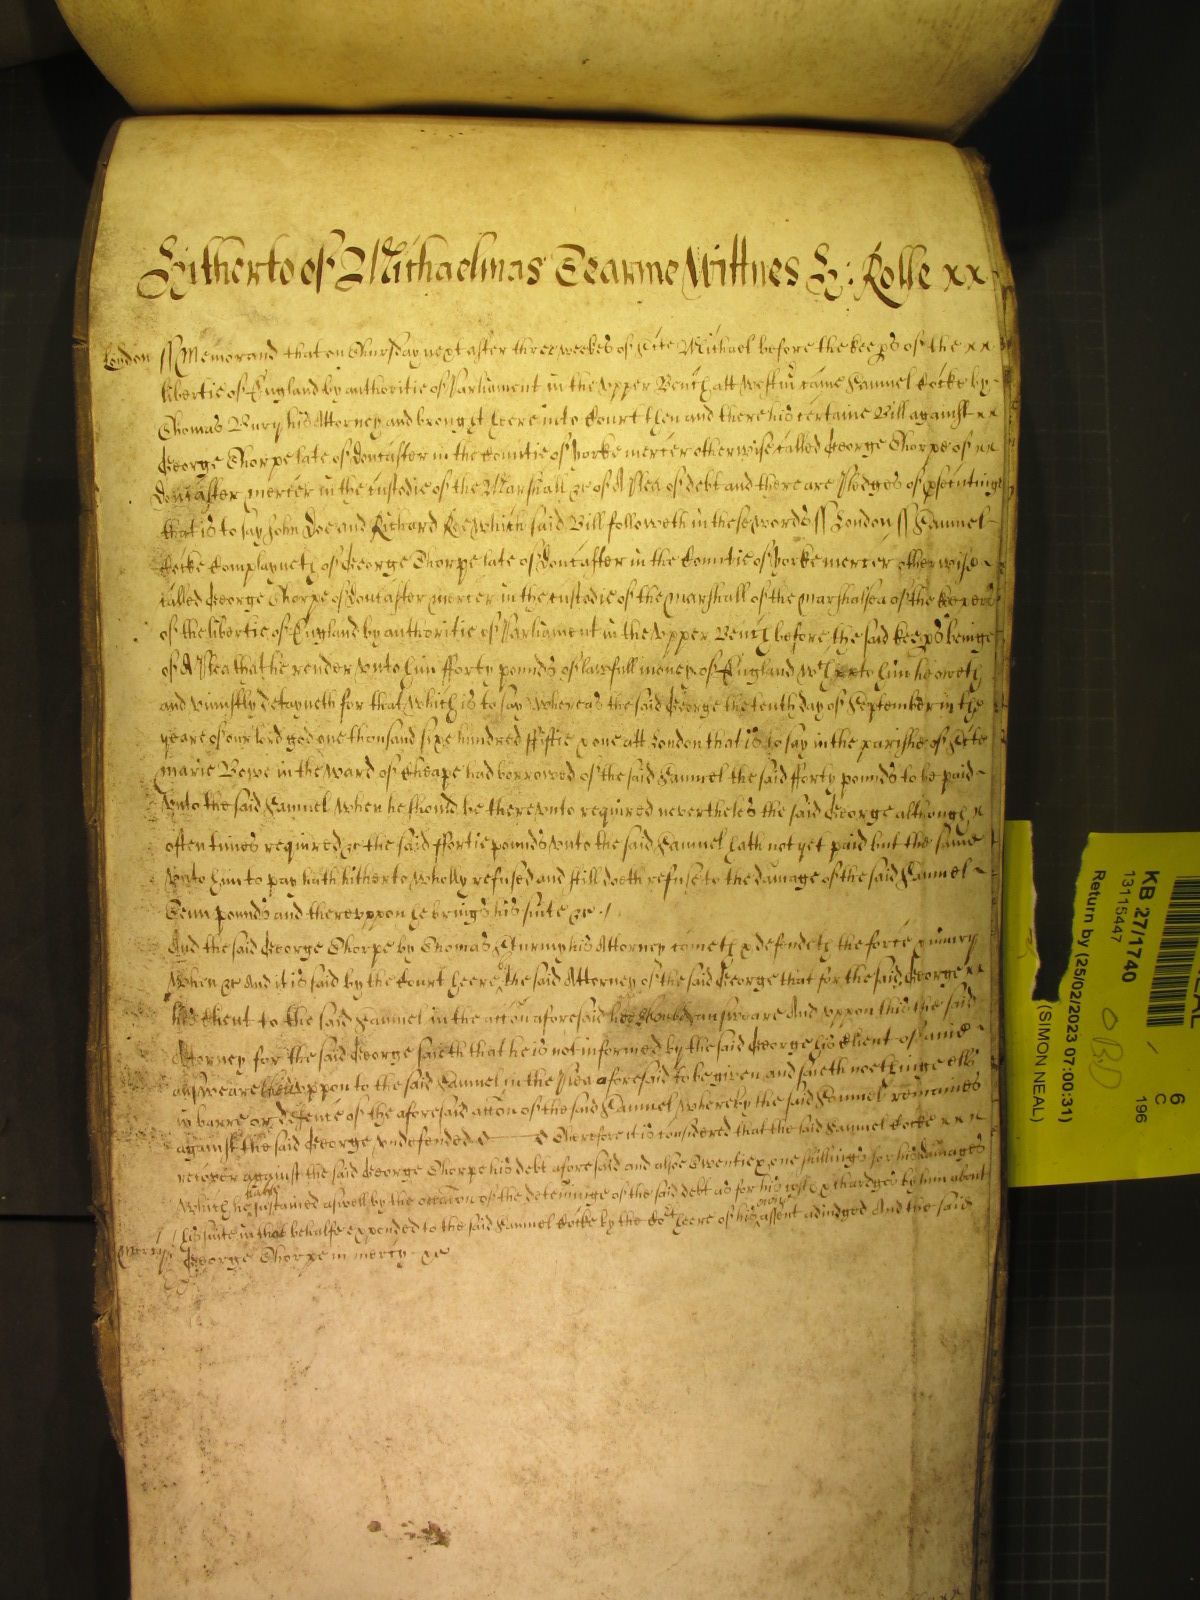 Hitherto of Michaelmas Tearme Wittnes H: Rolle xx
London // Memorand that on Thursday next after three weekes of Scte Michael before the keeps of the x x
libertie of England by authoritie of Parliament in the Upper Bench att Westm came Samuel Cocke by
Thomas Bury his Attorney and brought heere into Court then and there his certaine Bill against x x
George Thorpe late of Doncaster in the Countie of Yorke mercer otherwise called George Thorpe of x x
Doncaster mercer in the custodie of the Marshall &c of A Plea of debt and there are Pledges of psecutinge
that is to say John Doe and Richard Roe which said Bill followeth in these words // London // Samuel
Cocke Complayneth of George Thorpe late of Doncaster in the Countie of Yorke mercer otherwise
called George Thorpe of Doncaster mercer in the custodie of the marshall of the marshalsea of the keepers
of the libertie of England by authoritie of Parliament in the Upper Bench before the said keeps beinge
of A Plea that he render unto him fforty pounds of lawfull money of England wch unto him he oweth
and uniustly detayneth for that Which is to say Whereas the said George the tenth day of September in the
yeare of our lord god one thousand sixe hundred ffiftie x one att London that is to say in the parishe of Scte
marie Bowe in the ward of Cheape had borrowed of the said Samuel the said fforty pounds to be paid
unto the said Samuel when he should be thereunto required nevertheles the said George although
oftentimes required &c the said ffortie pounds unto the said Samuel hath not yet paid but the same
unto him to pay hath hitherto wholly refused and still doeth refuse to the damage of the said Samuel
Tenn pounds and thereuppon he brings his suite &c /
And the said George Thorpe by Thomas Sturmy his Attorney cometh x defendeth the force x iniury
when &c And it is said by the Court heere to the said Attorney of the said George that for the said George x x
his Client to the said Samuel in the accon aforesaid hee should answeare And uppon this the said
Attorney for the said George saieth that he is not informed by the said George his Client of anie
answeare thereuppon to the said Samuel in the Plea aforesaid to be given and saieth noethinge els
in barre or defence of the aforesaid accon of the said Samuel whereby the said Samuel remaines
against the said George undefended Therefore it is considered that the said Samuel Cocke x x x
recover against the said George Thorpe his debt aforesaid and alsoe Twentie x one shillings for his damages
which he hath sustained aswell by the occacon of the deteininge of the said debt as for his costs x chardges by him about
his suite in that behalfe expended to the said Samuel Cocke by the Cot heere of his owne assent adiudged And the said
Mercy // George Thorpe in mercy &c
KB 27/1740
13115447
Return by (25/02/2023 07:00:31)
(SIMON NEAL)
6
C
196